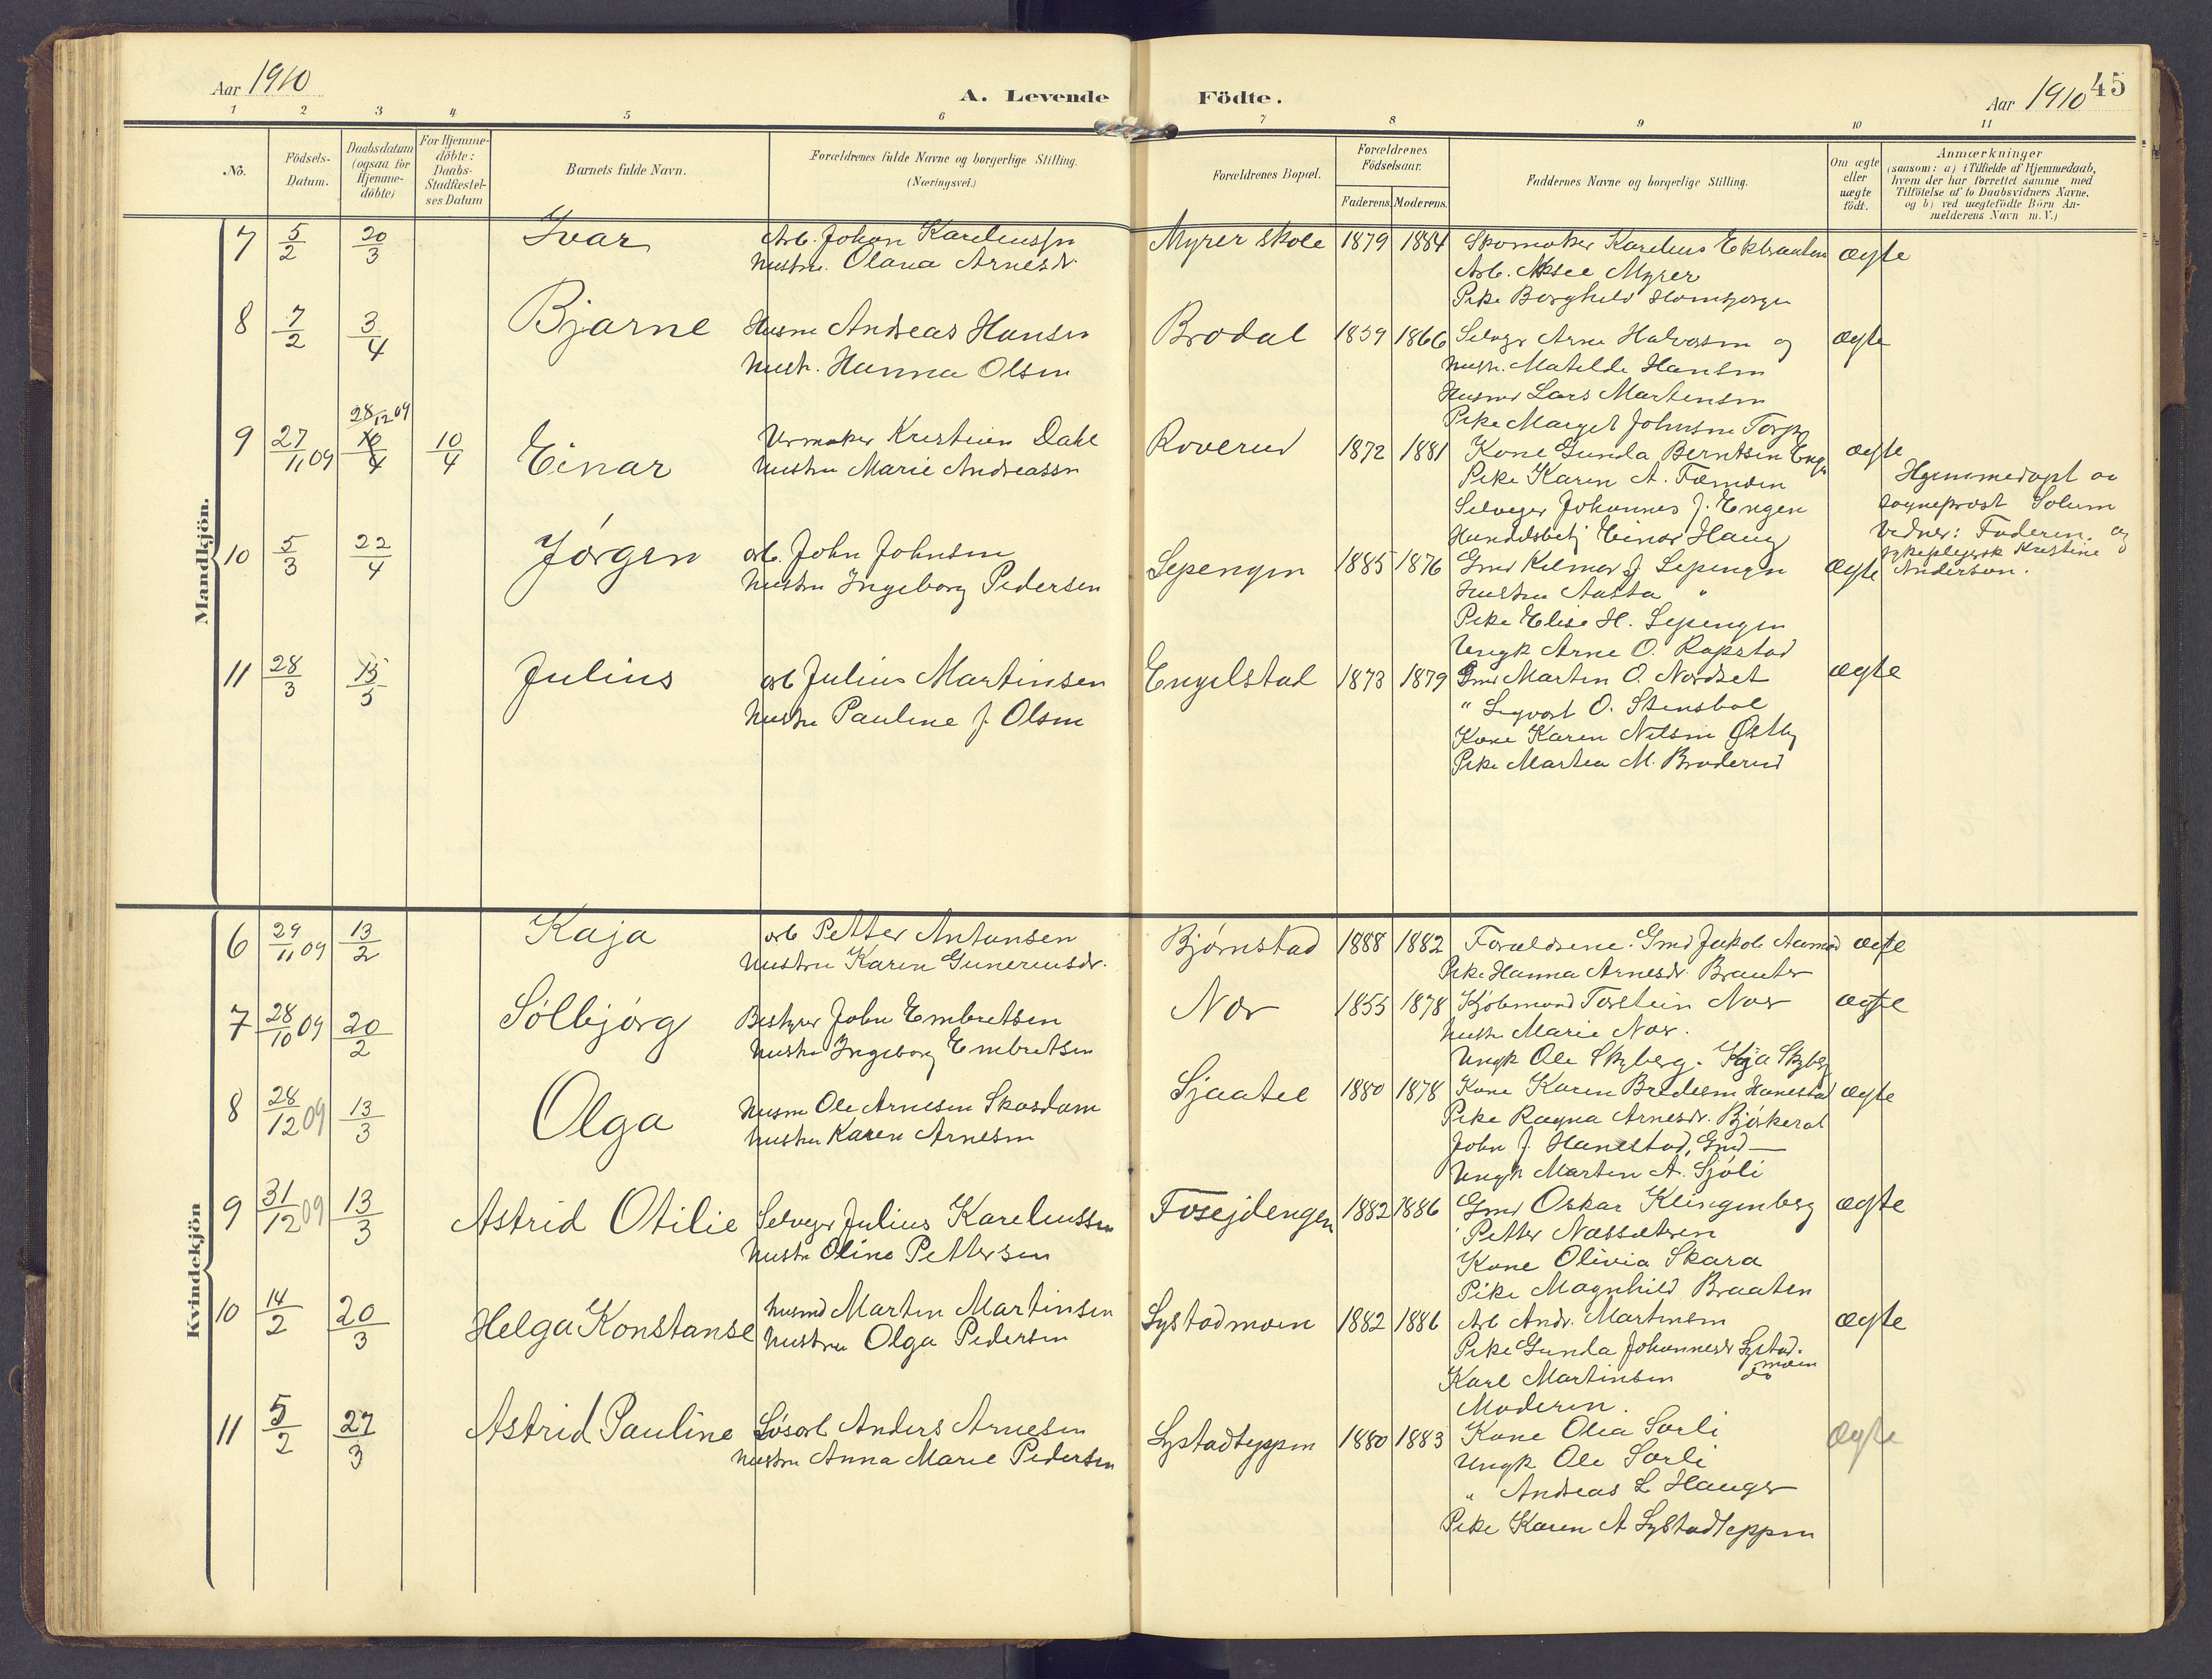 Aar 1910
A. Levende Födte.
Aar 1910
45
1 2 3 4 5 6 7 8 9 10 11
No.
Födsels-Datum.
Daabsdatum (ogsaa for Hjemme-döbte)
For Hjemme-döbte: Daabs-Stadfæstel-ses Datum
Barnets fulde Navn.
Forældrenes fulde Navne og borgerlige Stilling. (Næringsvei.)
Forældrenes Bopæl.
Forældrenes Födselsaar.
Faderens. Moderens.
Faddernes Navne og borgerlige Stilling.
Om ægte eller uægte födt.
Anmærkninger
(saasom: a) i Tilfælde af Hjemmedaab,
hvem der har forrettet samme med
Tilföielse af to Daabsvidners Navne.
og b) ved uægtefödte Börn An-
melderens Navn m.V.)
Mandkjön.
7 5/2 20/3 Ivar Arb. Johan Kareliussen Myrer skole 1879 1884 Skomaker Karelius Ekbraaten ægte
hustru. Olava Arnesdr. Arb. Aksel Myrer
Pike Borghild
8 7/2 3/4 Bjarne Husm Andreas Hansen Brodal 1859 1866 Selveger Arne Halvorsen og ægte
hustr. Hanna Olsen hustr. Matilde Hansen
Husmd Lars Martinsen
Pike Marget Johnsen Torp
28/12 09
9 27/11 09 10/4 10/4 Einar Urmaker Kristian Dahl Roverud 1872 1881 Kone Gunda Berntsen Engen ægte
hustru Marie Andreassen Pike Karen A. Fæmoen Hjemmedøpt av
Selveger Johannes J. Engen sogneprost Solum
Handelsbetj Einar Haug Vidner: Faderen og
10 5/3 22/4 Jørgen arb. John Johnsen Sepengen 1885 1876 Gmd Kelmer J Sepengen ægte sykeplejersk Kristine
hustru Ingeborg Pedersen Hustru Aasta " Anderson.
Pike Elise H. Sepengen
Ungk Arne O. Rapstad
11 28/3 15/5 Julius arb Julius Martinsen Engelstad 1873 1879 Gmd Martin O. Nordset ægte
hustru Pauline J. Olsen " Sigvart O. Stensbøl
Kone Karen Nilsen Østby
Pike Martea M. Bruderud
Kvindekjön
6 29/11 09 13/2 Kaja arb Petter Antonsen Bjørnstad 1888 1882 Forældrene. Gmd Jakob Aamod ægte
hustru Karen Guneriusdr. Pike Hanna Arnesdr. Brauter
7 28/10 09 20/2 Sølbjørg Bestyrer John Embretsen Nor 1855 1878 Kjøbmand Torstein Nor ægte
hustru Ingeborg Embretsen hustr Marie Nor.
Ungk Ole Skyberg. Kaja Skyberg
8 28/12 09 13/3 Olga husm Ole Arnesen Skasdam Sjaatel 1880 1878 Kone Karen Bredesen Hanestad ægte
hustru Karen Arnesen Pike Ragna Arnesdr. Bjørkerat
John J. Hanestad, Gmd —
Ungk Martin A. Sjøli
9 31/12 09 13/3 Astrid Otilie Selveger Julius Kareliussen Fosejdengen 1882 1886 Gmd Oskar Klingenberg ægte
hustr Oline Pettersen " Petter Næssætren
Kone Olivia Skara
Pike Magnhild Braaten
10 14/2 20/3 Helga Konstanse husmd Martin Martinsen Systadmoen 1882 1886 Arb Andr. Martinsen ægte
hustru Olga Pedersen Pike Gunda Johannesdr Systad-
moen
Karl Martinsen do
Moderen.
11 5/2 27/3 Astrid Pauline Løsarb Anders Arnesen Systadteppen 1880 1883 Kone Olea Sørli ægte
hustru Anna Marie Pedersen Ungk Ole Sørli
" Andreas L Hauger
Pike Karen A Systadteppen